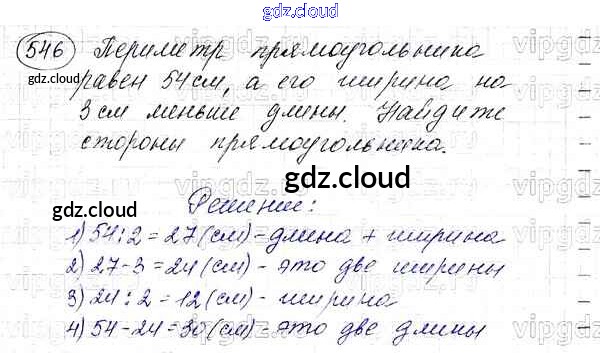 gdz.cloud
546 Периметр прямоугольника
gdz.cloud
равен 54 см, а его ширина на
3 см меньше длины. Найдите
стороны прямоугольника.
gdz.cloud
gdz.cloud
Решение:
1) 54 : 2 = 27 (см) - длина + ширина
2) 27 - 3 = 24 (см) - это две ширины
3) 24 : 2 = 12 (см) - ширина
4) 54 - 24 = 30 (см) - это две длины